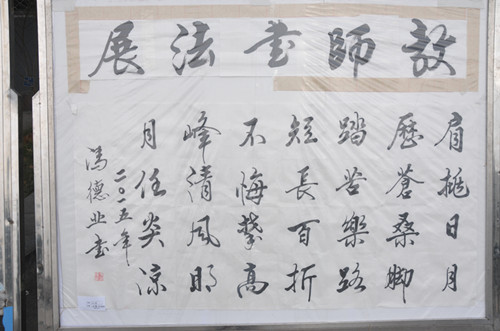 教師書法展
肩挑日月
歷蒼桑脚
踏苦樂路
短長百折
不悔攀高
峰清風明
月任炎涼
二〇一五年
馮德业書